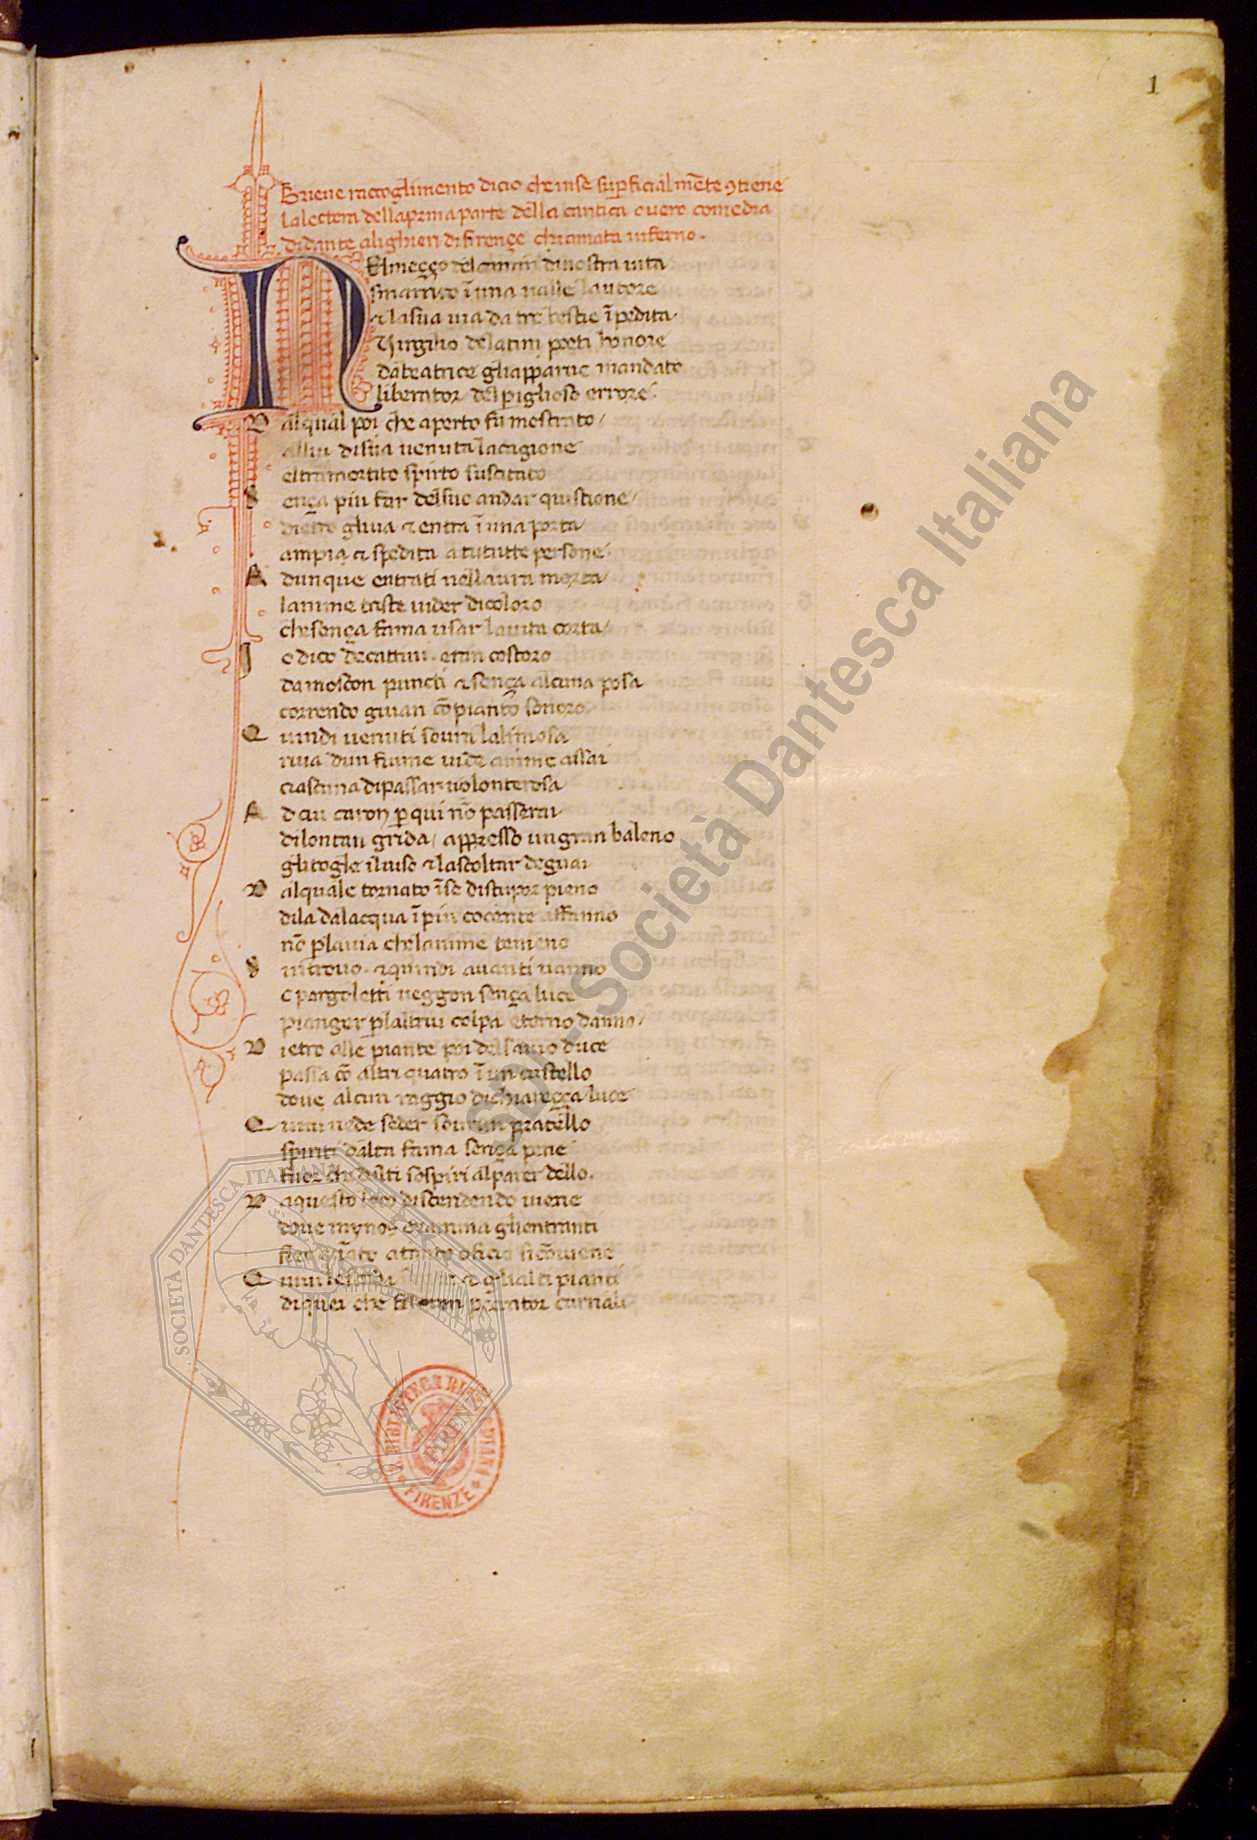 1
Brieue raccoglimento dicio che inse superficialmēte ꝯtiene
lalectera dellaprima parte della cantica ouero comedia
didante alighieri difirençe chiamata inferno.
NElmeçço del camin dinostra uita
smarrito ī una ualle lautore
⁊ lasua uia da tre bestie īpedita
Virgilio delatini poeti honore
dabeatrice gliapparue mandato
liberator del periglioso errore
Dalqual poi che aperto fu mostrato
allui disua uenuta lacagione
eltramortito spirto suscitato
Sença piu far delsuo andar quistione
dietro gliua ⁊ entra ī una porta
ampia ⁊ spedita a tututte persone
Adunque entrati nellaura morta
lanime triste uider dicoloro
chesença fama usar lauita corta
Io dico decattiui. eran costoro
damoscon puncti ⁊ sença alcuna posa
correndo giuan cō pianto sonoro
Quindi uenuti soura lalimosa
riua dun fiume uide anime assai
ciascuna dipassar uolonterosa
Ad cui caron ꝑ qui nō passerai
dilontan grida, appresso un gran baleno
glitogle iluiso ⁊ lascoltar deguai
Dalquale tornato ī se distupor pieno
dila dalacqua ī piu cocente affanno
nō ꝑ lauia chelanime tenieno
Si ritrouo. ⁊ quindi auanti uanno
e pargoletti ueggon sença luce
pianger ꝑ laltrui colpa eterno danno
Dietro alle piante poi delsauio duce
passa cō altri quatro ī un castello
doue alcun raggio dichiareçça luce
Quiui uede seder soura un pratello
spiriti dalta fama sença pene
fuor che dalti sospiri alparer dello.
Daquesto loco discendendo uiene
doue mynos examina glientranti
fier quāto a tanto oficio si cōuiene
Quiui le strida ⁊ glialti pianti
diquei che furon peccator carnali
SDI - Società Dantesca Italiana
SOCIETÀ DANTESCA ITALIANA
R. BIBLIOTECA RICCARDIANA
FIRENZE
FIRENZE